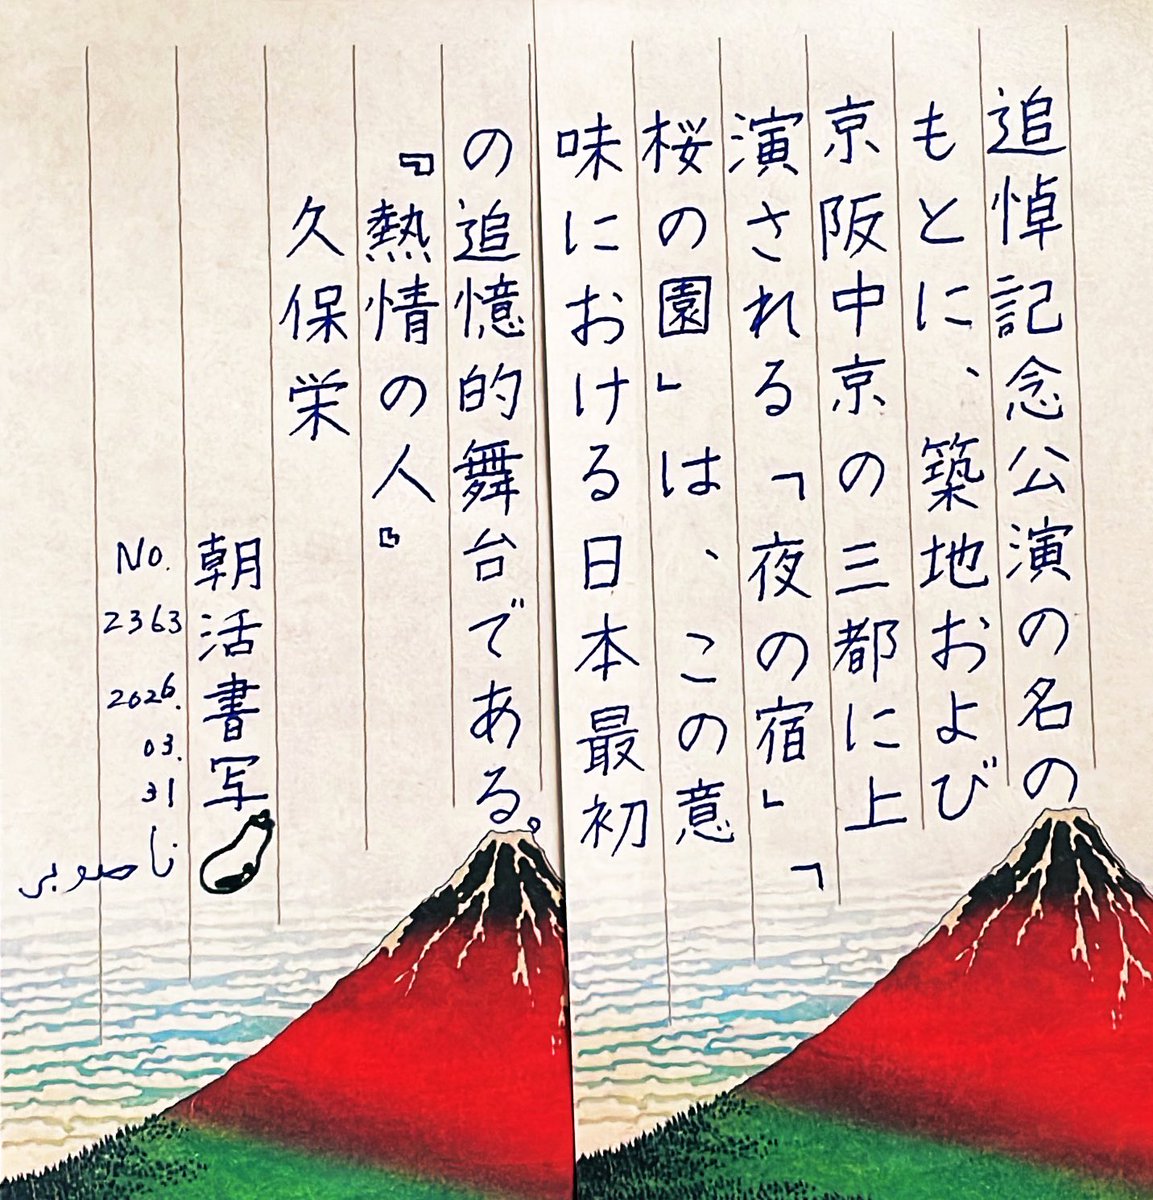 追悼記念公演の名の
もとに、築地および
京阪中京の三都に上
演される「夜の宿」「
桜の園」は、この意
味における日本最初
の追憶的舞台である。
『熱情の人』
久保栄
朝活書写
No.
2363
2026.
03.
31